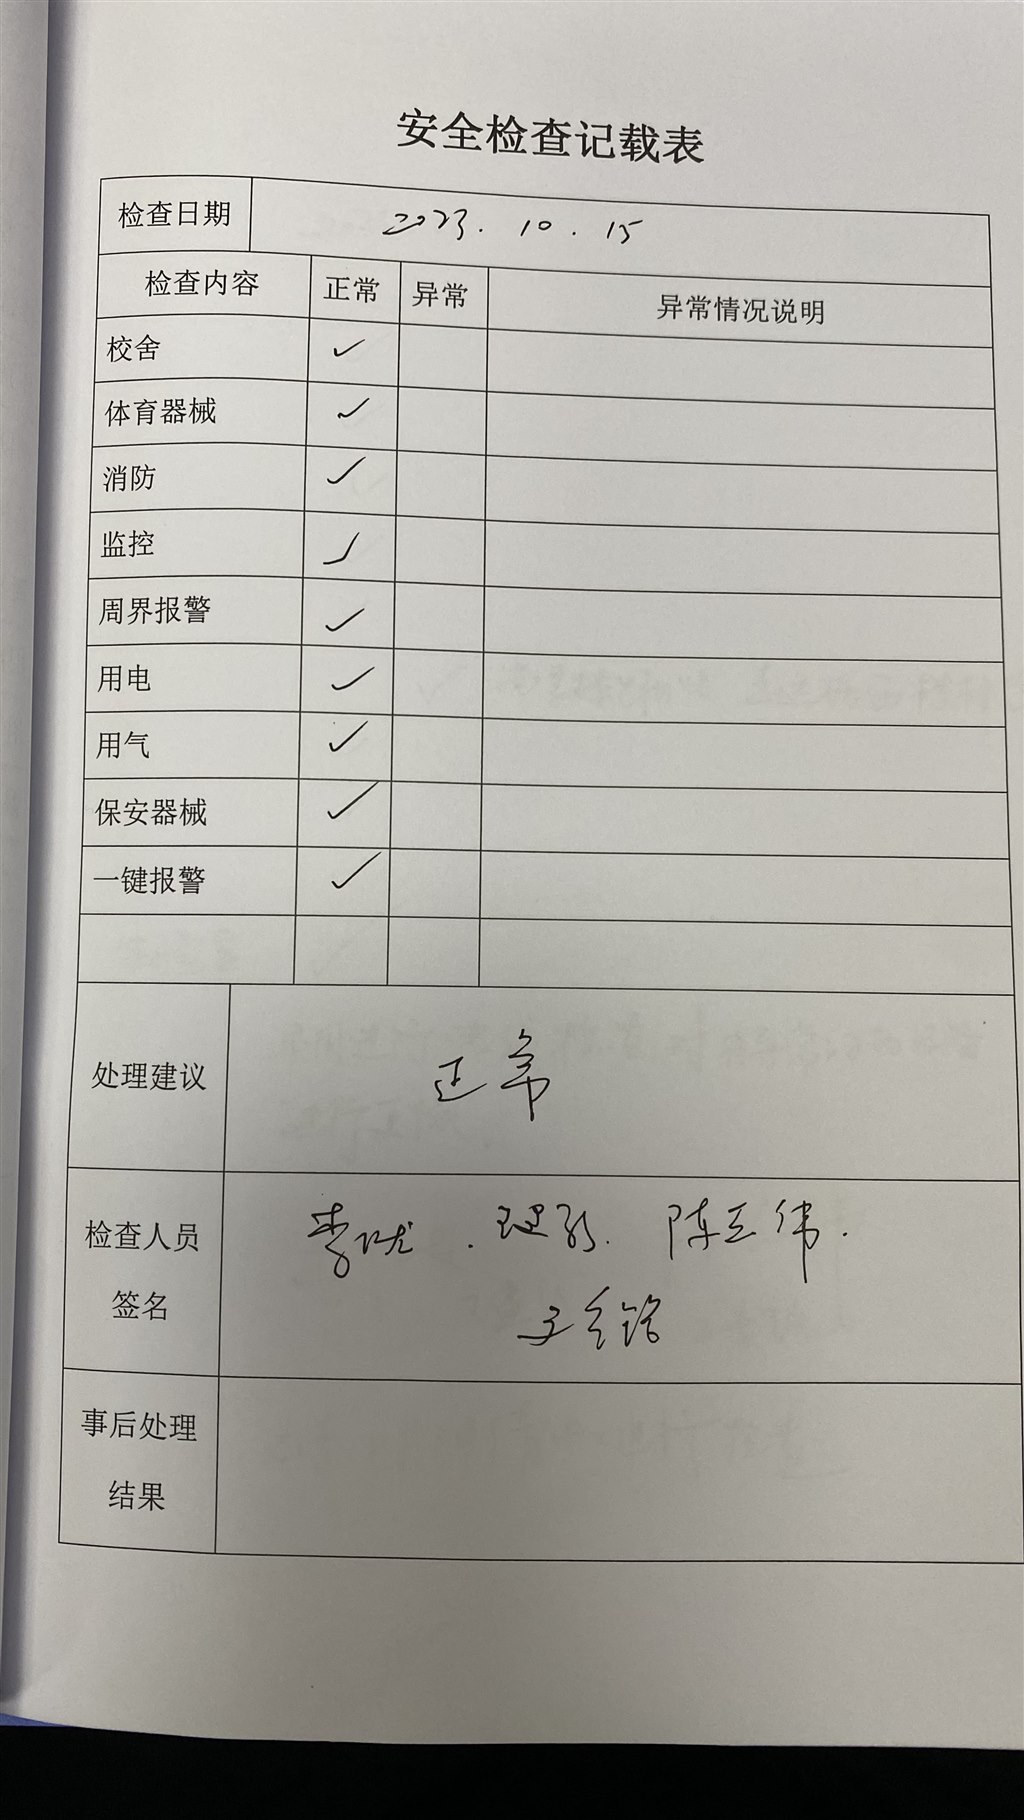 安全检查记载表
检查日期 2023.10.15
检查内容 正常 异常 异常情况说明
校舍 ✓
体育器械 ✓
消防 ✓
监控 ✓
周界报警 ✓
用电 ✓
用气 ✓
保安器械 ✓
一键报警 ✓
处理建议 正常
检查人员
签名
陈三伟.
事后处理
结果